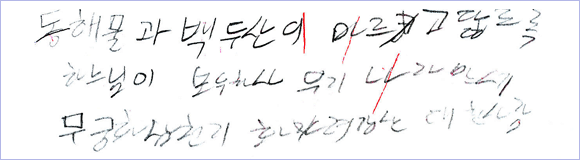 동해물과 백두산의 마르고 닳도록
하느님이 보우하사 우리 나라 만세
무궁화삼천리 화려강산 대한사람